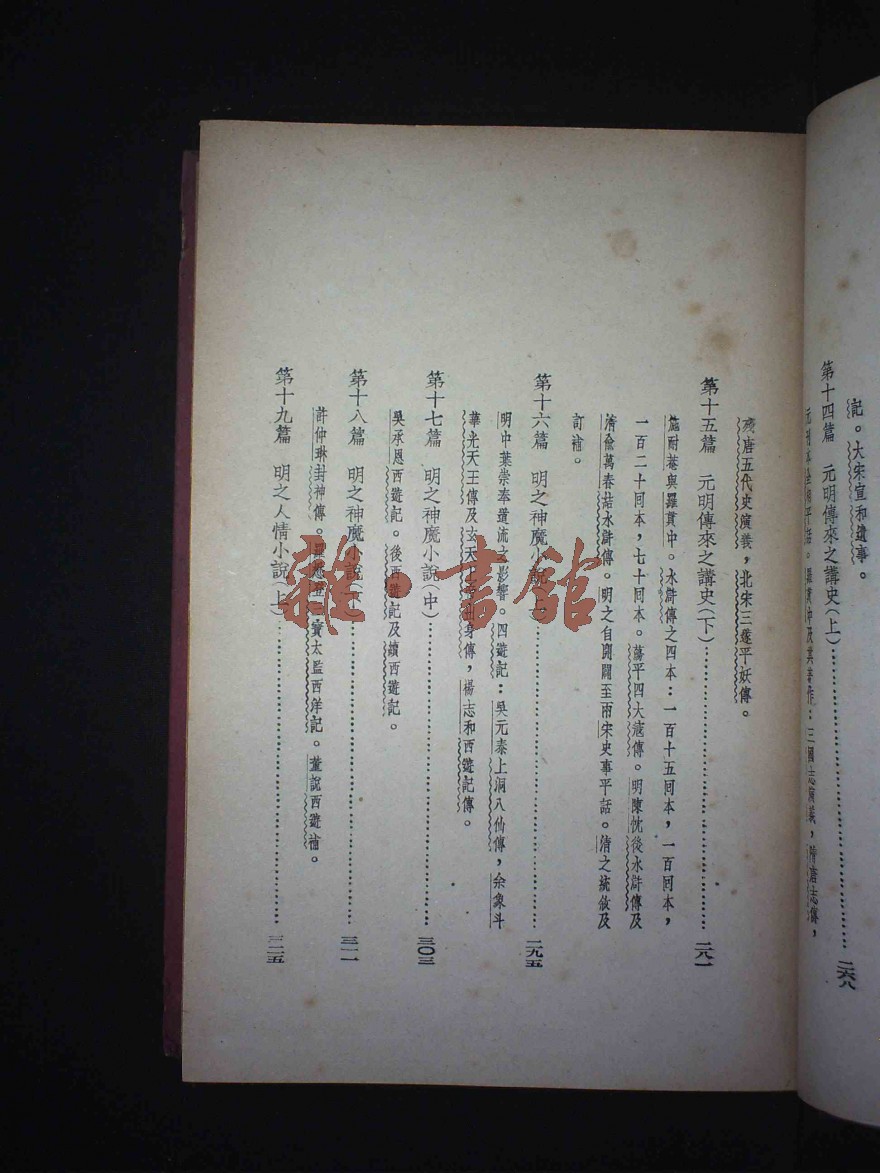 記。大宋宣和遺事。
第十四篇　元明傳來之講史(上)……二六八
羅貫中及其著作：三國志演義，隋唐志傳，
殘唐五代史演義，北宋三遂平妖傳。
第十五篇　元明傳來之講史(下)……二八一
施耐菴與羅貫中。水滸傳之四本：一百十五回本，一百回本，
一百二十回本，七十回本。蕩平四大寇傳。明陳忱後水滸傳及
清俞萬春結水滸傳。明之自開闢至兩宋史事平話。清之統敘及
訂補。
第十六篇　明之神魔小說……二九五
明中葉崇奉道流之影響。四遊記：吳元泰上洞八仙傳，余象斗
華光天王傳及玄天上帝出身傳，楊志和西遊記傳。
第十七篇　明之神魔小說(中)……三〇三
吳承恩西遊記。後西遊記及續西遊記。
第十八篇　明之神魔小說(下)……三一一
許仲琳封神傳。羅懋登三寶太監西洋記。董說西遊補。
第十九篇　明之人情小說(上)……三二五
雜·書館